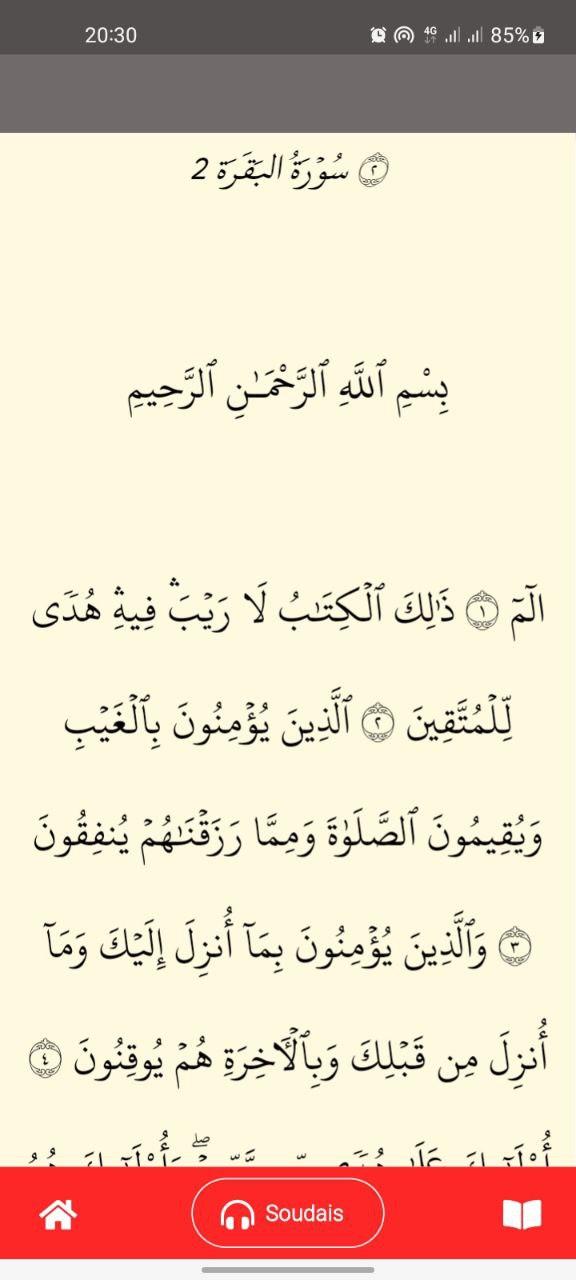 20:30
4G
85%
٢ سُوۡرَةُ البَقَرَة 2
بِسْمِ ٱللَّهِ ٱلرَّحْمَـٰنِ ٱلرَّحِيمِ
الٓمٓ ١ ذَٰلِكَ ٱلۡكِتَـٰبُ لَا رَيۡبَۛ فِيهِۛ هُدٗى
لِّلۡمُتَّقِينَ ٢ ٱلَّذِينَ يُؤۡمِنُونَ بِٱلۡغَيۡبِ
وَيُقِيمُونَ ٱلصَّلَوٰةَ وَمِمَّا رَزَقۡنَـٰهُمۡ يُنفِقُونَ
٣ وَٱلَّذِينَ يُؤۡمِنُونَ بِمَآ أُنزِلَ إِلَيۡكَ وَمَآ
أُنزِلَ مِن قَبۡلِكَ وَبِٱلۡأٓخِرَةِ هُمۡ يُوقِنُونَ ٤
Soudais